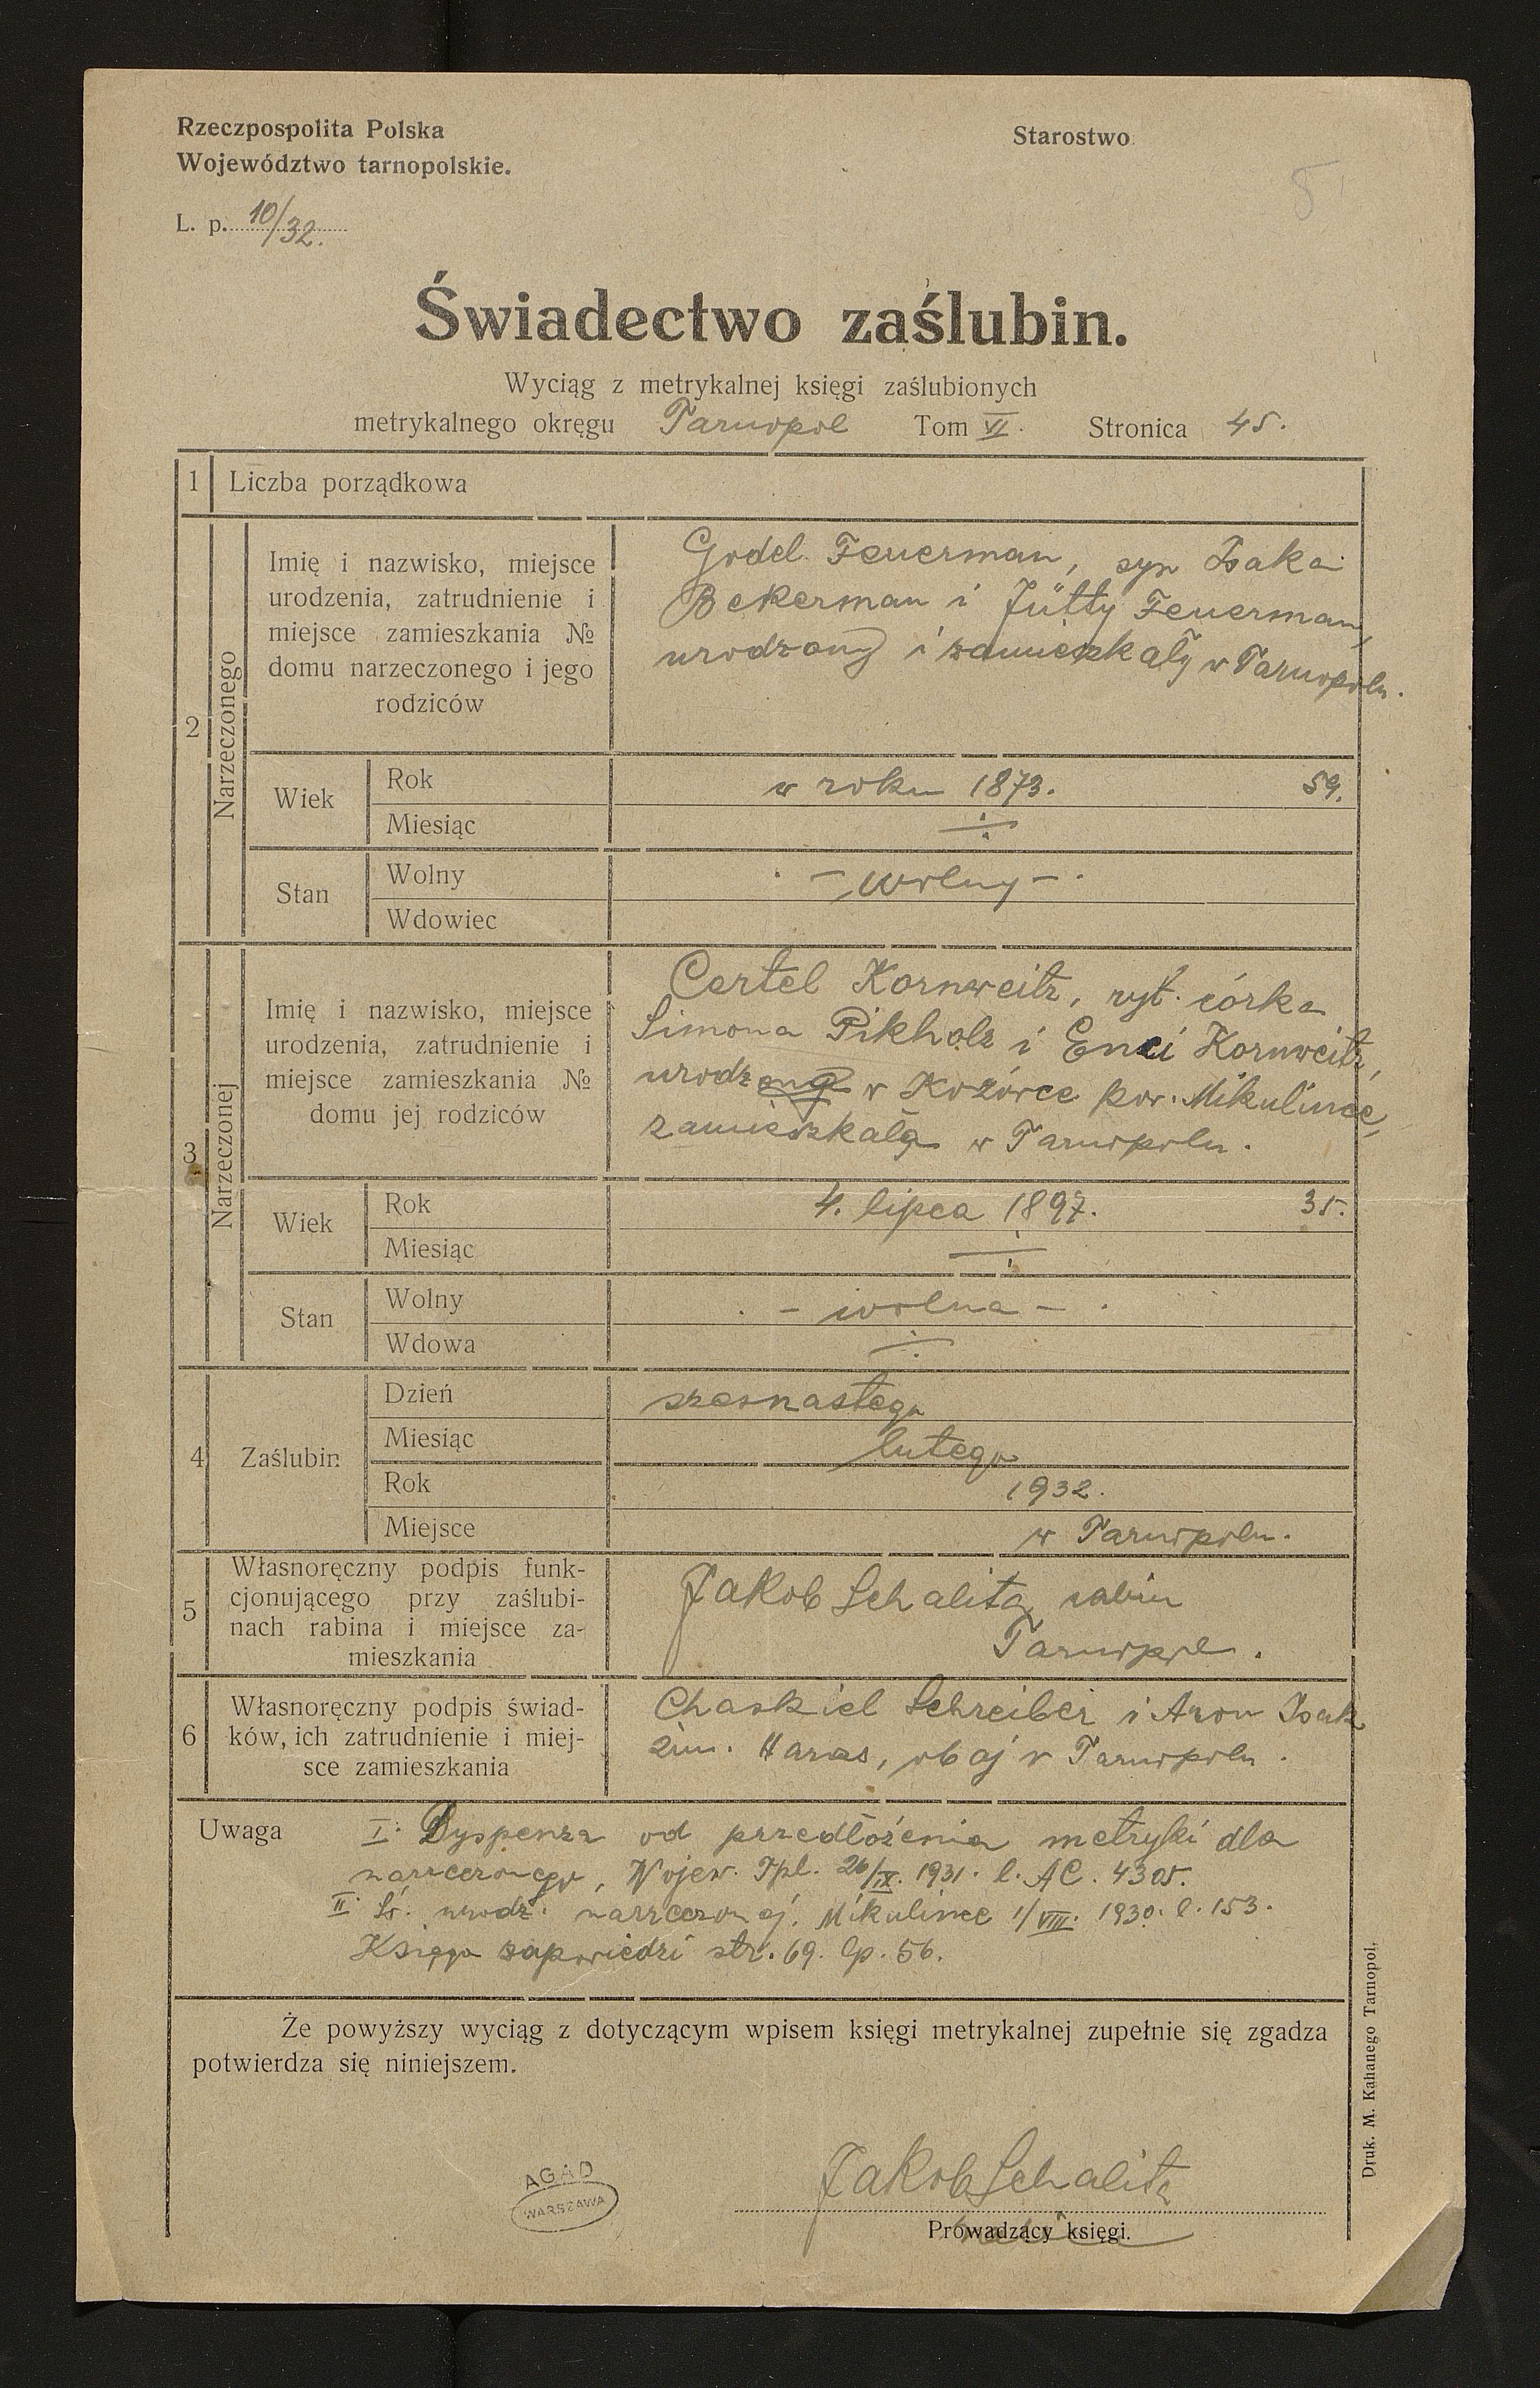 Rzeczpospolita Polska
Województwo tarnopolskie.
Starostwo
L. p. 10/32.
5
Świadectwo zaślubin.
Wyciąg z metrykalnej księgi zaślubionych
metrykalnego okręgu Tarnopol Tom VI. Stronica 45.
1 Liczba porządkowa
2 Narzeczonego
Imię i nazwisko, miejsce
urodzenia, zatrudnienie i
miejsce zamieszkania №
domu narzeczonego i jego
rodziców
Godel Feuerman, syn Isaka
Bekerman i Jütty Feuerman,
urodzony i zamieszkały w Tarnopolu.
Wiek
Rok w roku 1873. 59.
Miesiąc ÷
Stan
Wolny - wolny -
Wdowiec
3 Narzeczonej
Imię i nazwisko, miejsce
urodzenia, zatrudnienie i
miejsce zamieszkania №
domu jej rodziców
Certel Kornweitz, ryt. córka
Simona Pikholz i Enci Kornweitz,
urodzona w Kozówce pow. Mikulince,
zamieszkała w Tarnopolu.
Wiek
Rok 4. lipca 1897. 35.
Miesiąc ÷
Stan
Wolny - wolna -
Wdowa ÷
4 Zaślubin
Dzień szesnastego
Miesiąc lutego
Rok 1932.
Miejsce w Tarnopolu.
5 Własnoręczny podpis funk-
cjonującego przy zaślubi-
nach rabina i miejsce za-
mieszkania
Jakob Schalita, rabin
Tarnopol.
6 Własnoręczny podpis świad-
ków, ich zatrudnienie i miej-
sce zamieszkania
Chaskiel Schreiber i Aron Isak
2im. Haras, obaj w Tarnopolu.
Uwaga I. Dyspenza od przedłożenia metryki dla
narzeczonego, Wojew. Tpl. 26/IX. 1931. l. AC. 4305.
II. Św. urodz. narzeczonej, Mikulince 1/VIII. 1930. l. 153.
Księga zapowiedzi str. 69. lp. 56.
Że powyższy wyciąg z dotyczącym wpisem księgi metrykalnej zupełnie się zgadza
potwierdza się niniejszem.
AGAD
WARSZAWA
Jakob Schalita
Prowadzący księgi.
Druk. M. Kahanego Tarnopol.